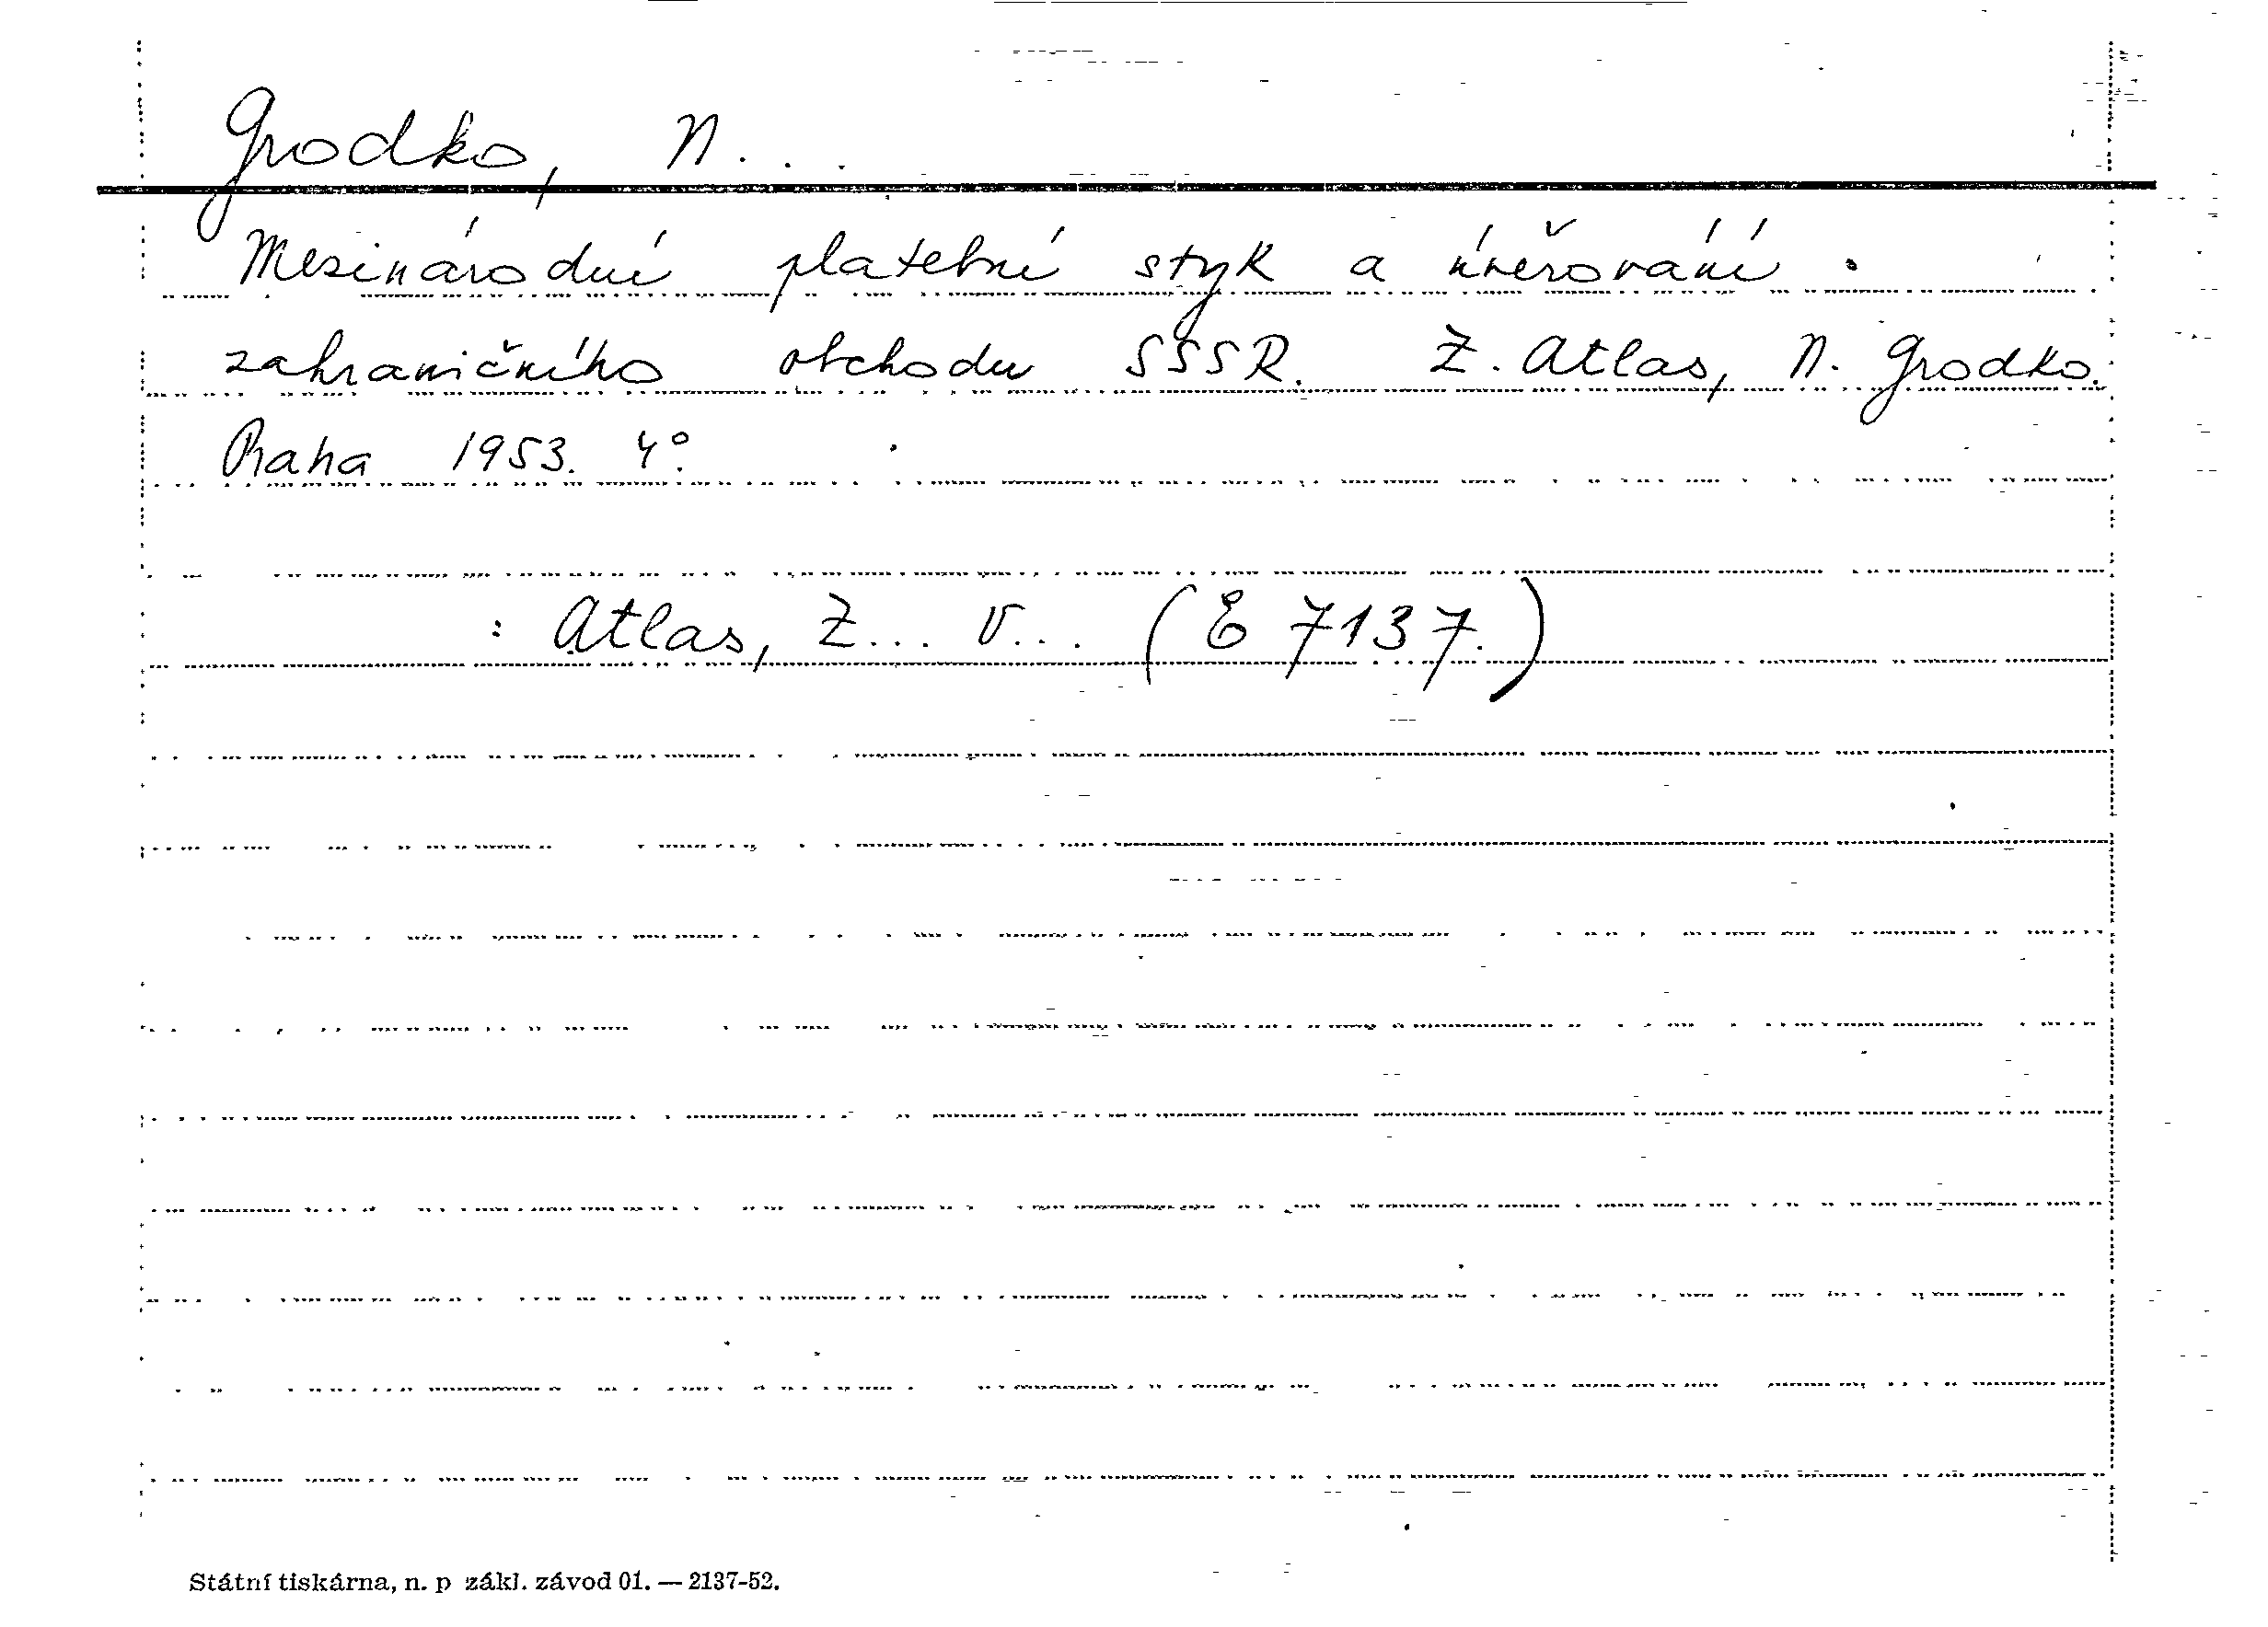 Grodko, N...
Mezinárodní platební styk a úvěrování
zahraničního obchodu SSSR. Z. Atlas, N. Grodko.
Praha 1953. 4°.
: Atlas, Z... V... (E 7137.)
Státní tiskárna, n. p zákl. závod 01. — 2137-52.